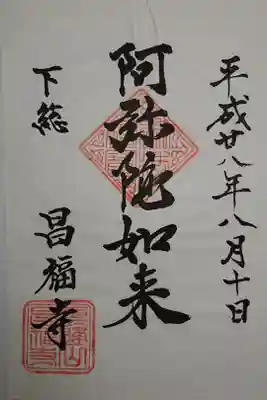 平成廿八年八月十日
阿弥陀如来
下総
昌福寺